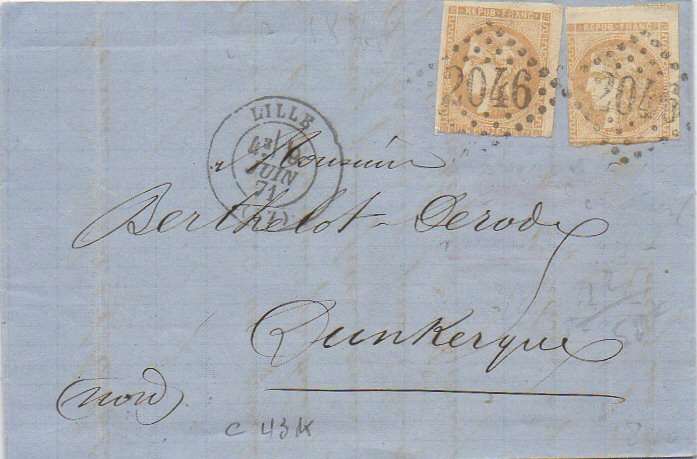 REPUB FRANC
REPUB FRANC
2046
204
LILLE
JUIN
71
Monsieur
Berthelot-Derode
Dunkerque
(nord)
c 43k